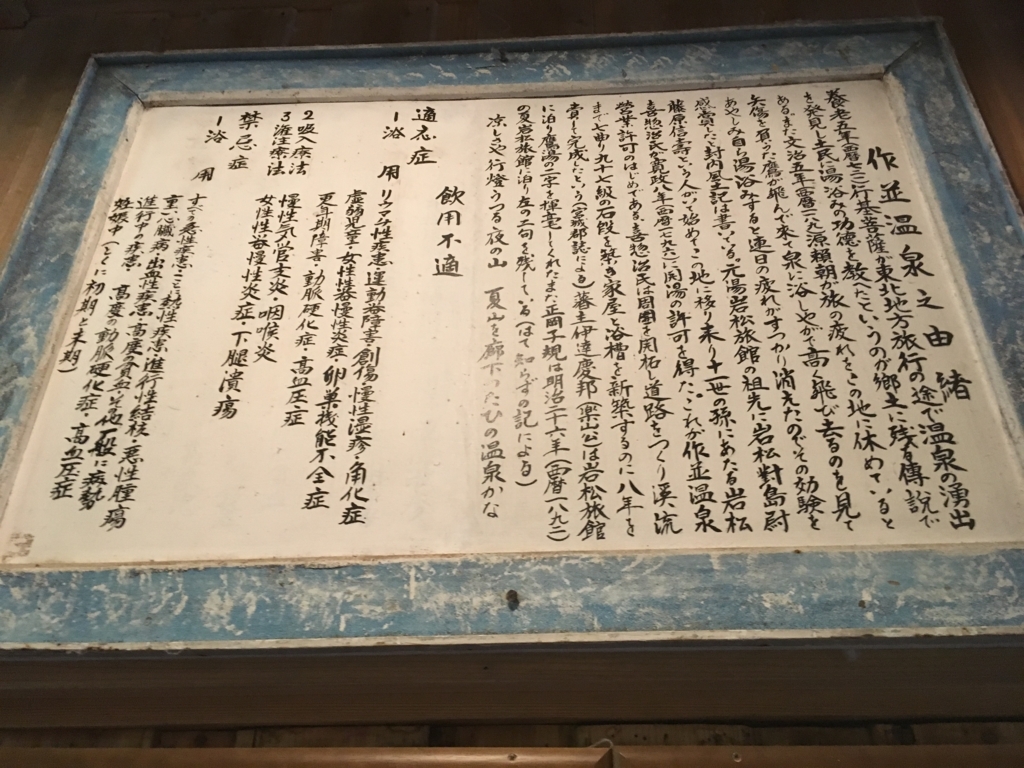 作並温泉之由緒
養老五年(西暦七二一)行基菩薩が東北地方旅行の途で温泉の湧出
を発見し土民に湯浴みの功徳を教へたといふのが郷土に残る傳説で
あるまた文治五年(西暦一一八九)源頼朝が旅の疲れをこの地に休めていると
矢傷を負った鷹が飛んで来て泉に浴しやがて高く飛び去るのを見て
あやしみ自ら湯浴みすると連日の疲れがすっかり消えたのでその効験を
感賞したと封内風土記は書いている。元湯岩松旅館の祖先に岩松對島尉
藤原信寿という人がいて始めてこの地に移り来り十一世の孫にあたる岩松
喜惣治氏が寛政八年(西暦一七九六)に開湯の許可を得たこれが作並温泉
営業許可のはじめである。喜惣治氏は周囲を開拓し道路をつくり溪流
まで七曲り九十七級の石段を築き家屋と浴槽を新築するのに八年を
費して完成したという(宮城郡誌による)藩主伊達慶邦(楽山公)は岩松旅館
に泊り鷹湯の二字を揮毫してくれたまた正岡子規は明治二十六年(西暦一八九三)
の夏岩松旅館に泊り左の二句を残している(はて知らずの記による)
涼しさや行燈うつる夜の山 夏山を廊下つたひの温泉かな
飲用不適
適応症
1 浴用 リウマチ性疾患・運動器障害・創傷・慢性湿疹・角化症
虚弱児童・女性性器慢性炎症・卵巣機能不全症
更年期障害・動脈硬化症・高血圧症
2 吸入療法 慢性気管支炎・咽喉炎
3 灌注療法 女性性器慢性炎症・下腿潰瘍
禁忌症
1 浴用 すべての急性疾患(ことに熱性疾患)・進行性結核・悪性腫瘍・
重い心臓病・出血性疾患・高度の貧血・その他一般に病勢
進行中の疾患、高度の動脈硬化症・高血圧症
妊娠中(とくに初期と末期)